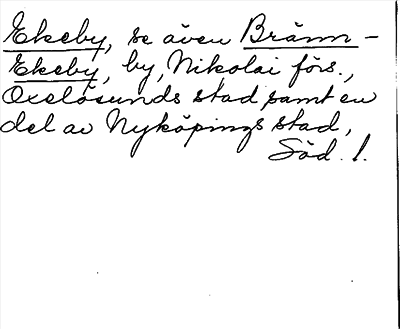 Ekeby, se även Bränn-
Ekeby, by, Nikolai förs.,
Oxelösunds stad samt en
del av Nyköpings stad,
Söd. l.